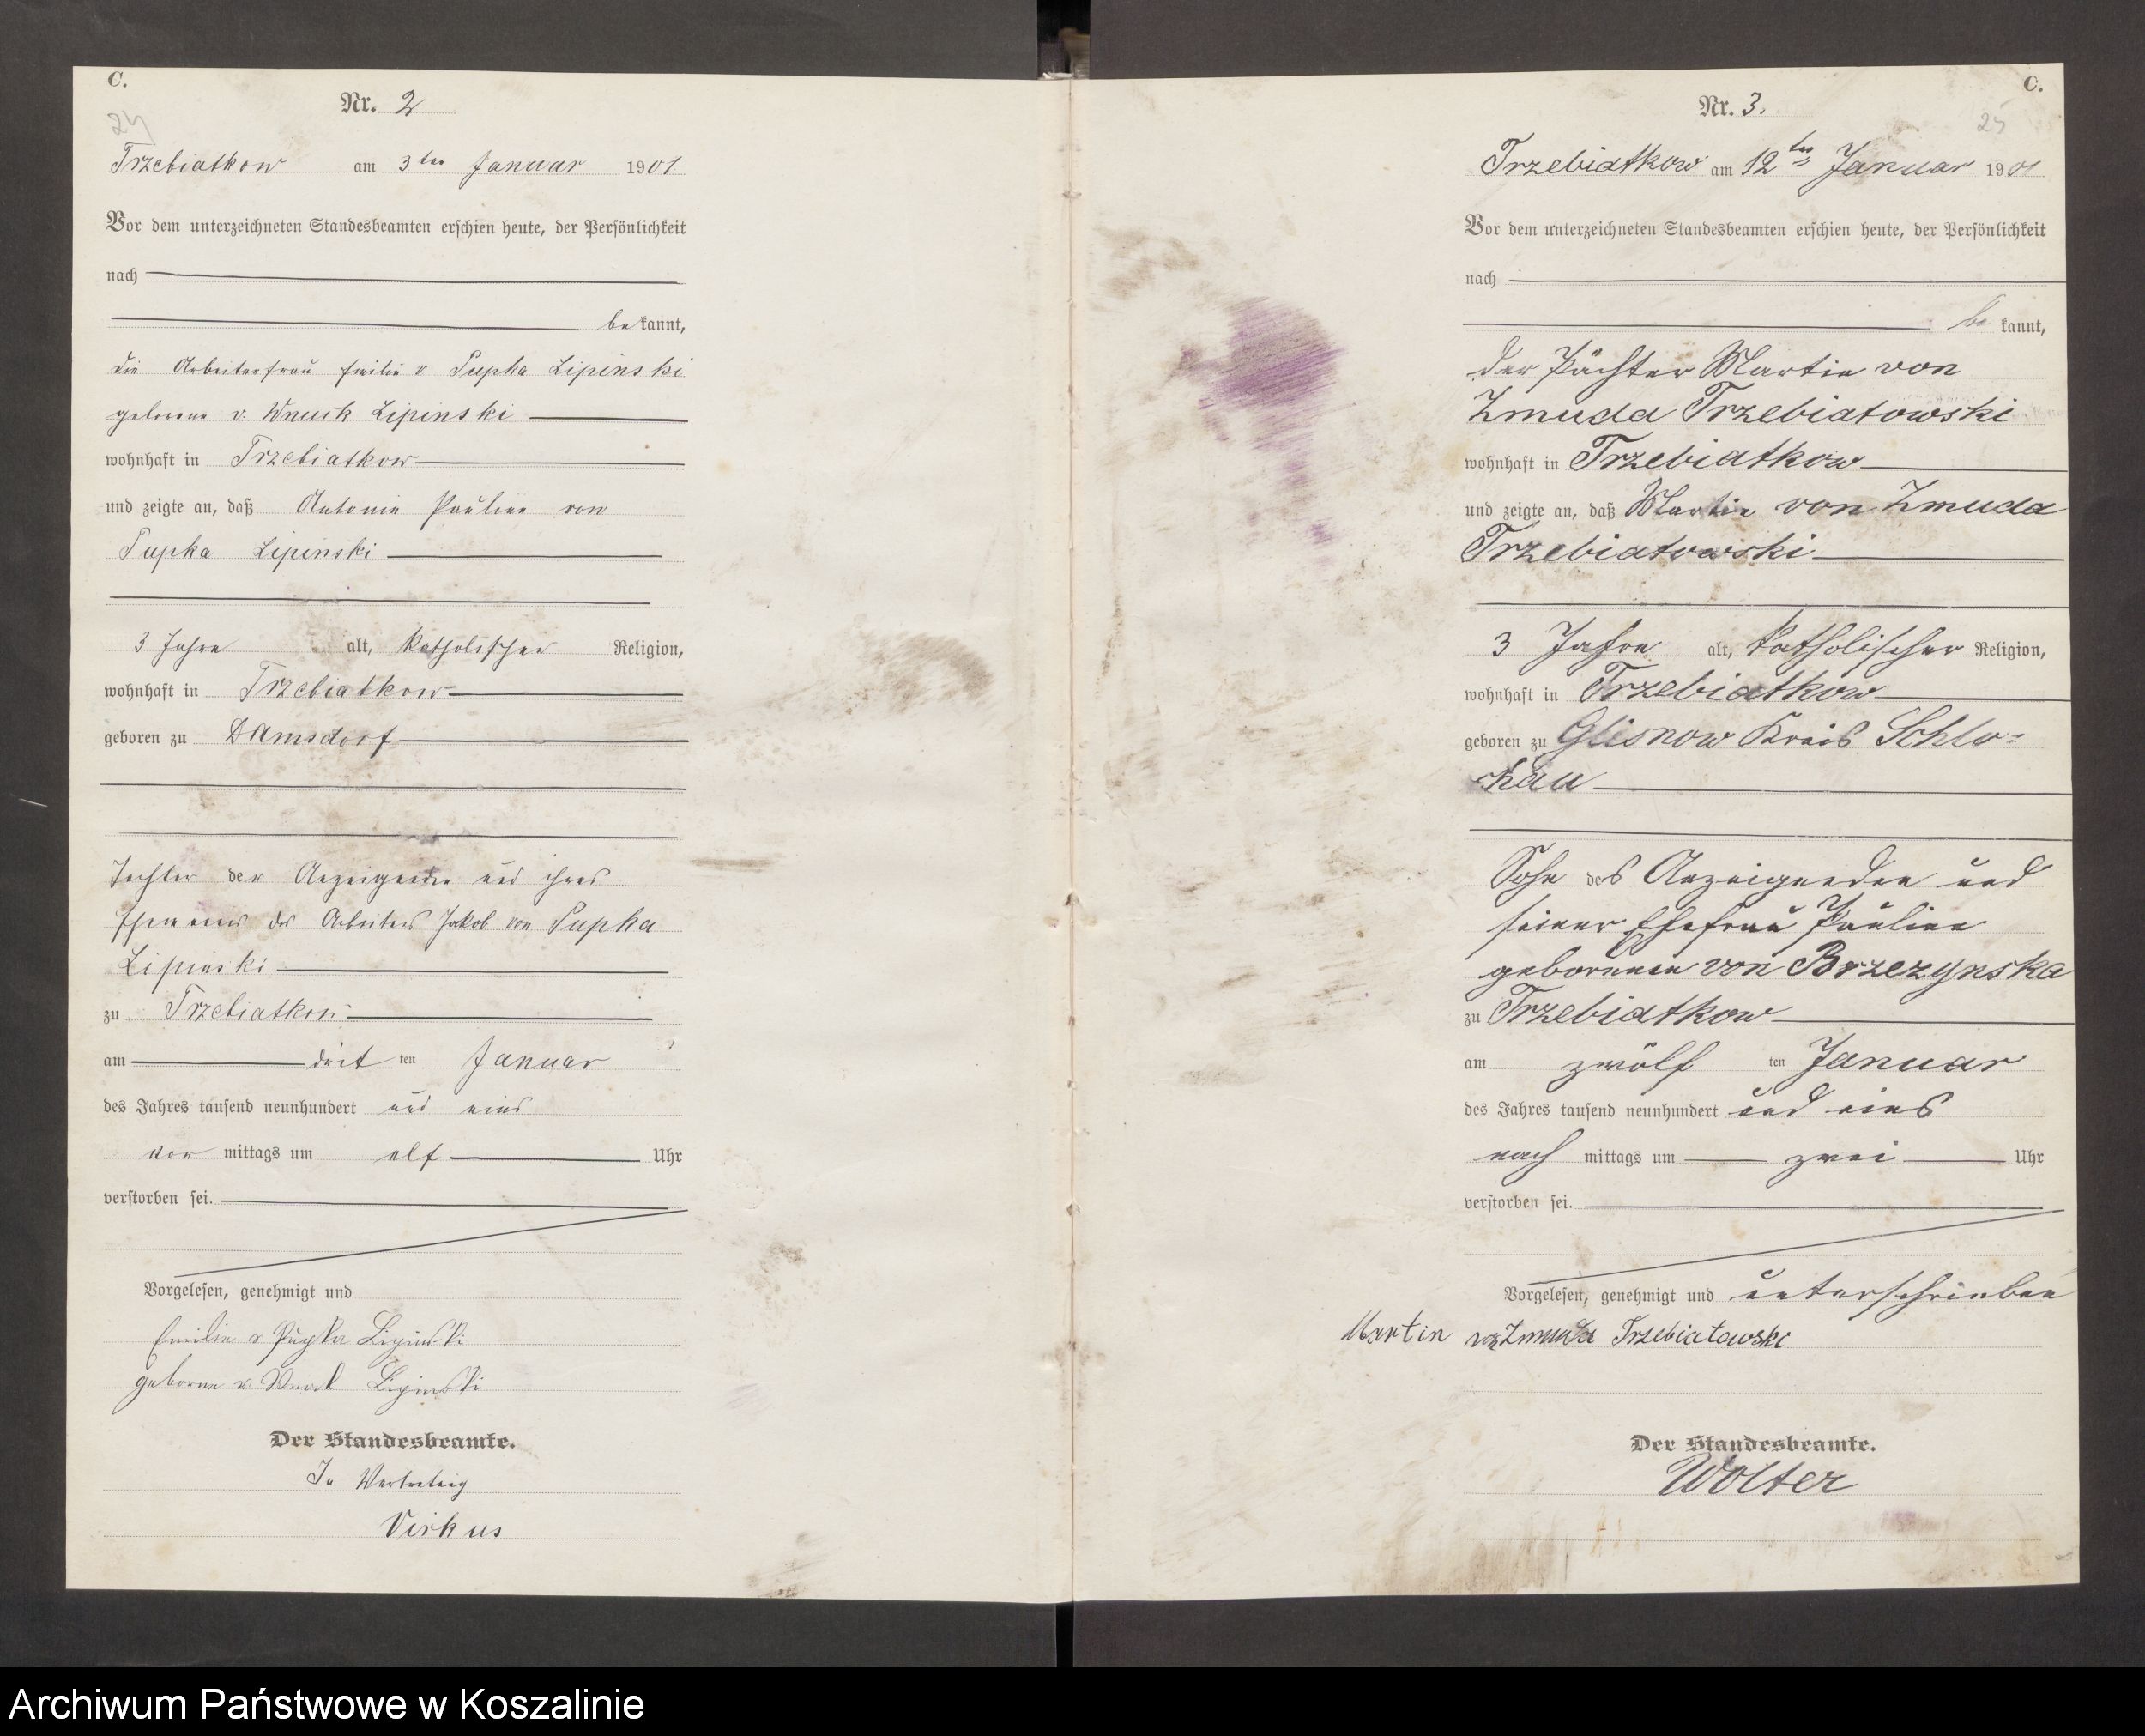 C.
Nr. 2
24
Trzebiatkow am 3ten Januar 1901.
Vor dem unterzeichneten Standesbeamten erschien heute, der Persönlichkeit
nach
bekannt,
die Arbeiterfrau Emilie v Pupka Lipinski
geborene v. Wnuck Lipinski
wohnhaft in Trzebiatkow
und zeigte an, daß Antonie Pauline von
Pupka Lipinski
3 Jahre alt, katholischer Religion,
wohnhaft in Trzebiatkow
geboren zu Damsdorf
Tochter der Anzeigenden und ihres
Ehemanns des Arbeiters Jakob von Pupka
Lipinski
zu Trzebiatkow
am dritten Januar
des Jahres tausend neunhundert und eins
vor mittags um elf Uhr
verstorben sei.
Vorgelesen, genehmigt und
Emilie v Pupka Lipinski
geborne v Wnuck Lipinski
Der Standesbeamte.
In Vertretung
Virkus
C.
Nr. 3.
25
Trzebiatkow am 12ten Januar 1901
Vor dem unterzeichneten Standesbeamten erschien heute, der Persönlichkeit
nach
bekannt,
der Pächter Martin von
Zmuda Trzebiatowski
wohnhaft in Trzebiatkow
und zeigte an, daß Martin von Zmuda
Trzebiatowski
3 Jahre alt, katholischer Religion,
wohnhaft in Trzebiatkow
geboren zu Glisnow Kreis Schlo=
chau
Sohn des Anzeigenden und
seiner Ehefrau Pauline
geborenen von Brzezynska
zu Trzebiatkow
am zwölften Januar
des Jahres tausend neunhundert und eins
nach mittags um zwei Uhr
verstorben sei.
Vorgelesen, genehmigt und unterschrieben
Martin von Zmuda Trzebiatowski
Der Standesbeamte.
Wolter
Archiwum Państwowe w Koszalinie